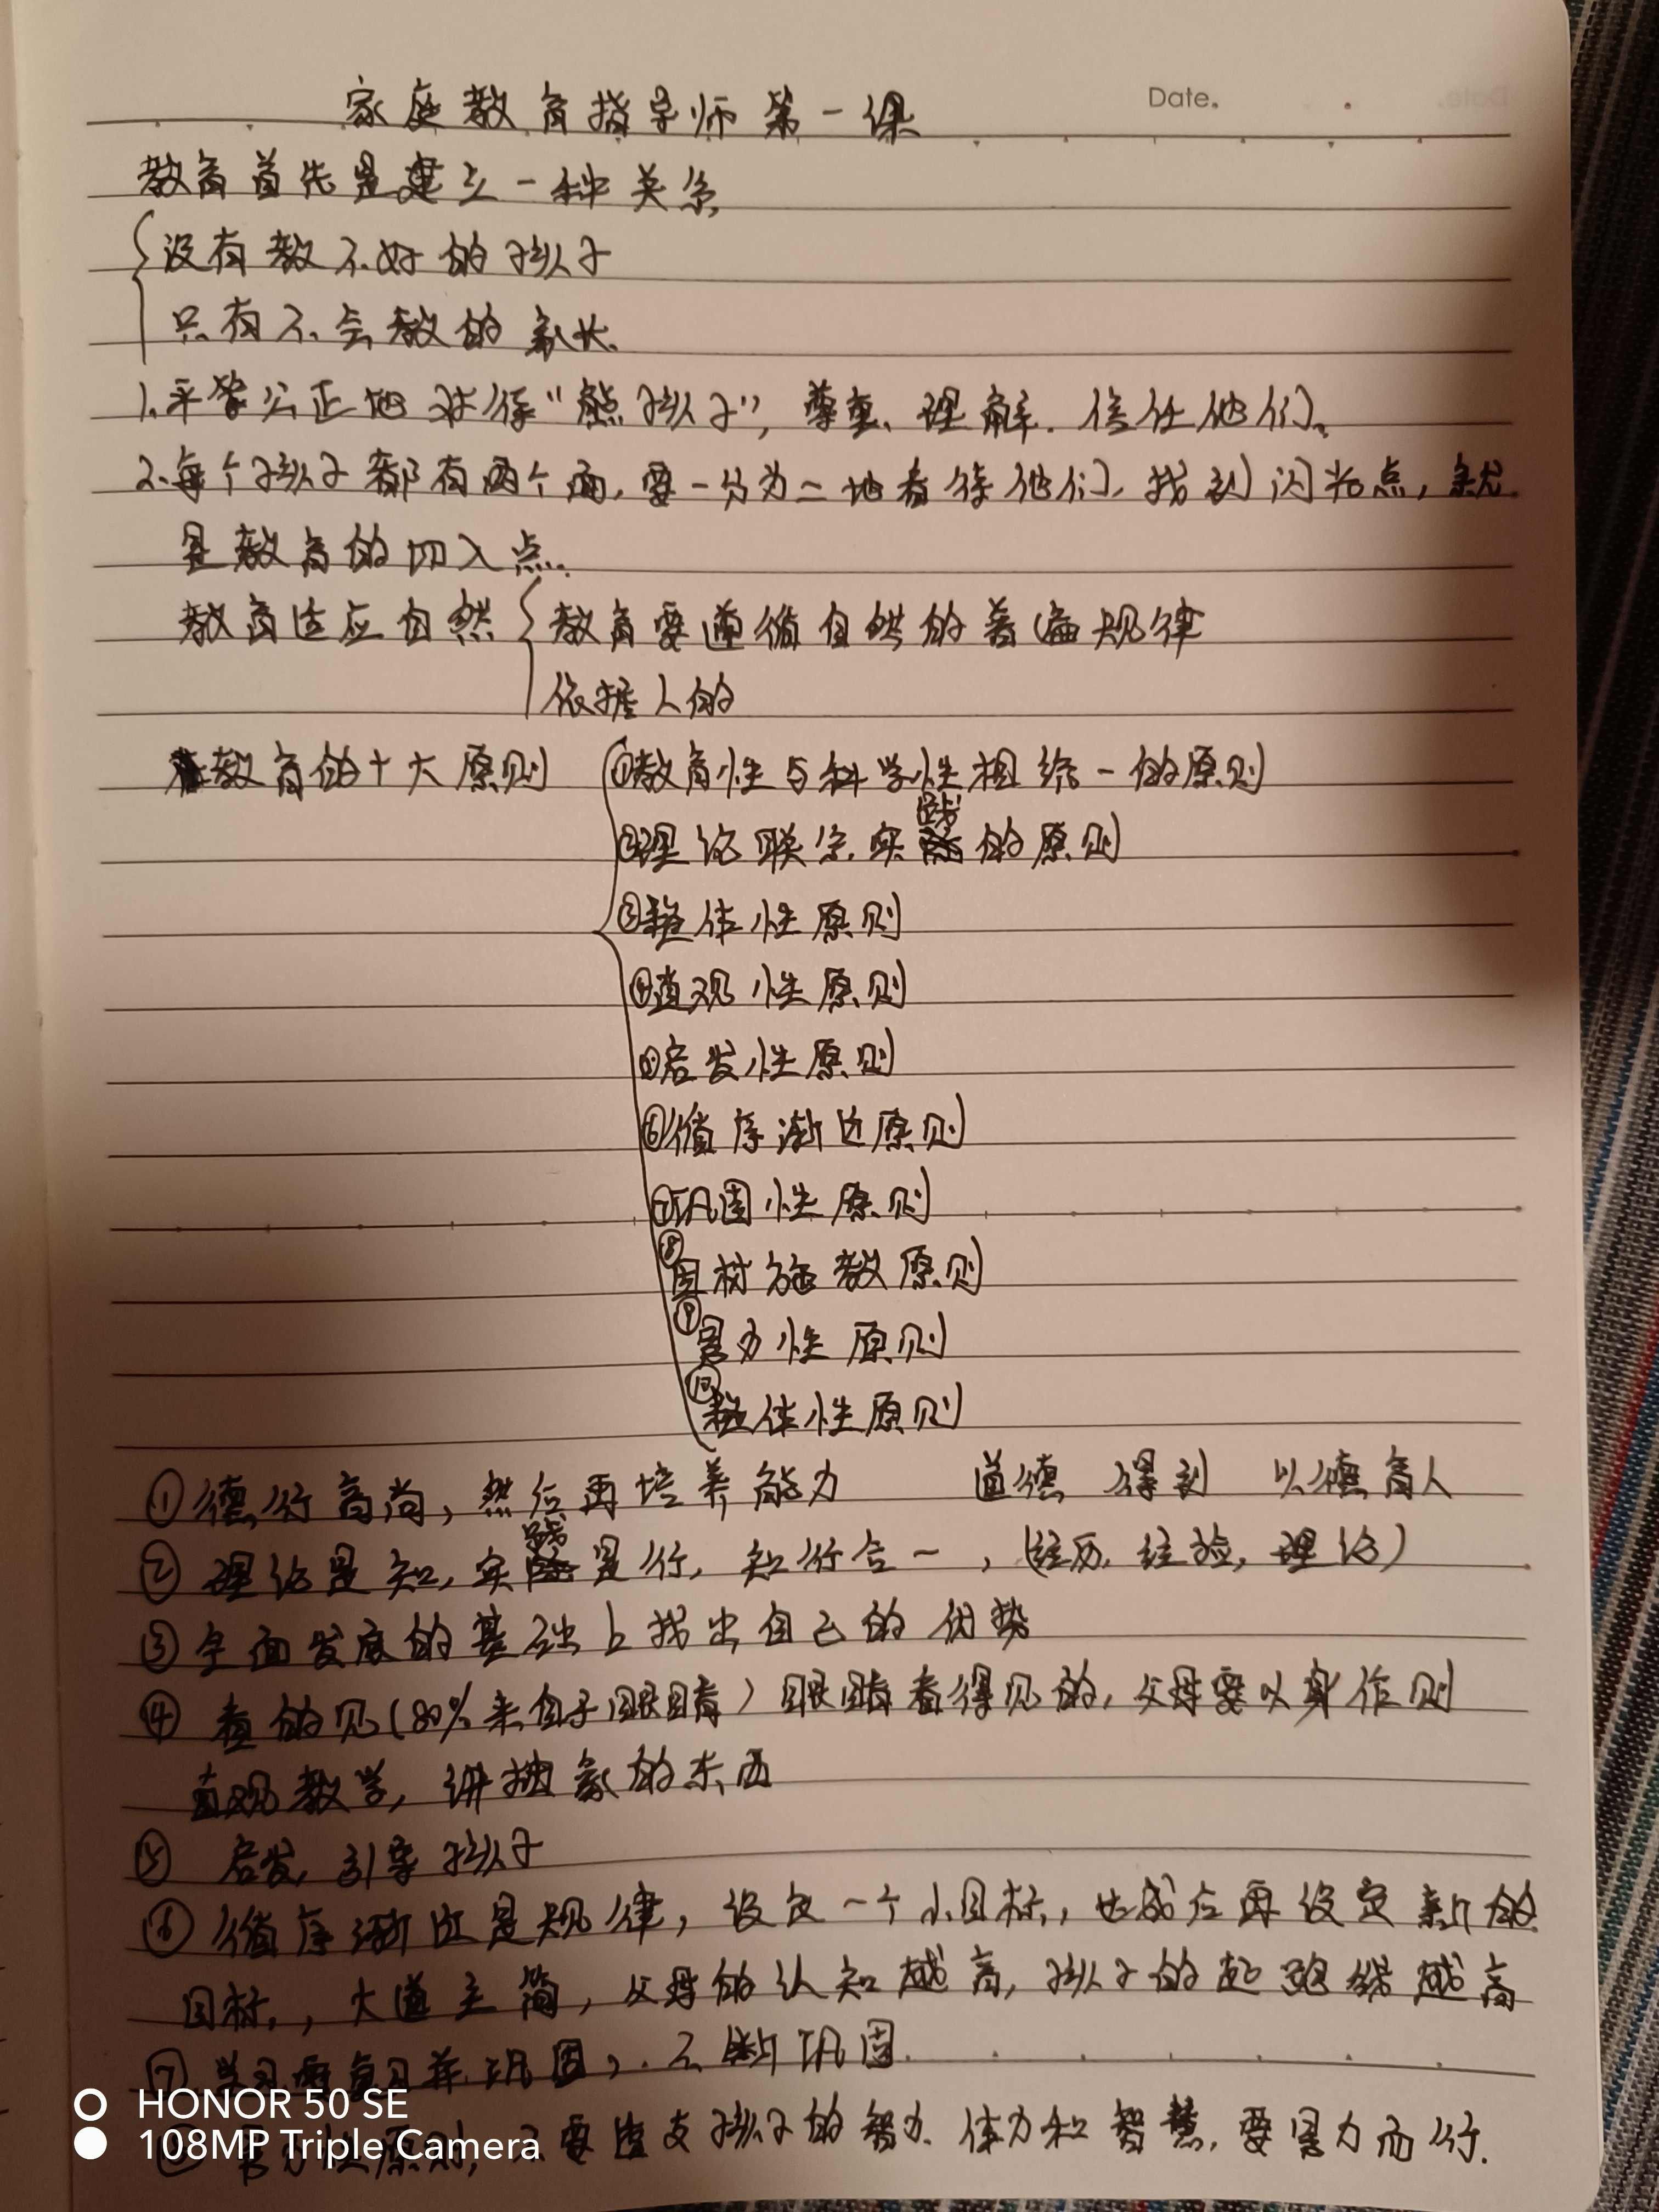 家庭教育指导师第一课
Date.
教育首先是建立一种关系
没有教不好的孩子
只有不会教的家长.
1.平等公正地对待“熊孩子”, 尊重、理解. 信任他们。
2.每个孩子都有两个面, 要一分为二地看待他们, 找到闪光点, 就
是教育的切入点.
教育适应自然 教育要遵循自然的普遍规律
依据人的
教育的十大原则 ①教育性与科学性相统一的原则
②理论联系实践的原则
③整体性原则
④直观性原则
⑤启发性原则
⑥循序渐进原则
⑦巩固性原则
⑧因材施教原则
⑨量力性原则
⑩整体性原则
①德行高尚, 然后再培养能力 道德 得到 以德育人
②理论是知, 实践是行, 知行合一, (经历, 经验, 理论)
③全面发展的基础上找出自己的优势
④看的见(80%来自于眼睛) 眼睛看得见的, 父母要以身作则
直观教学, 讲抽象的东西
⑤ 启发, 引导孩子
⑥循序渐进是规律, 设定一个小目标, 达成后再设定新的
目标, , 大道至简, 父母的认知越高, 孩子的起跑线越高
⑦学习要复习并巩固, . 不断巩固.
量力性原则, 不要透支孩子的智力. 体力和智慧, 要量力而行.
HONOR 50 SE
108MP Triple Camera